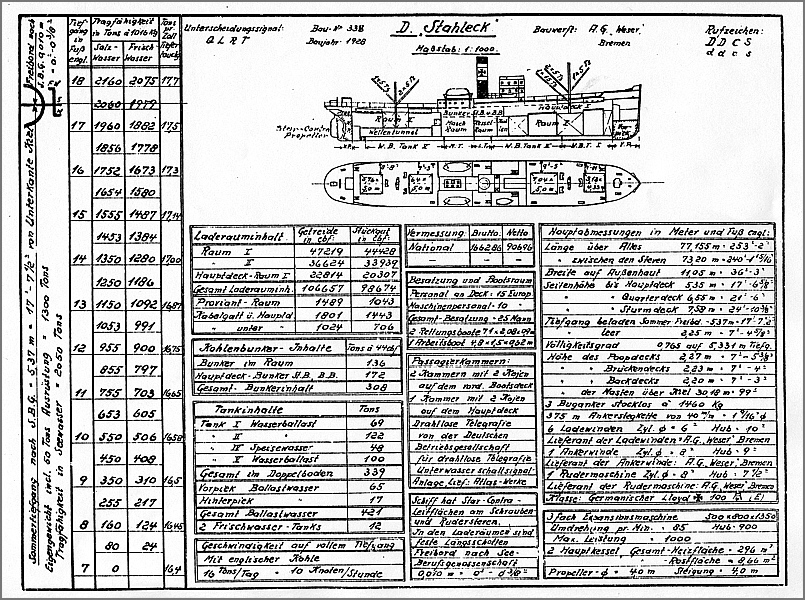 Unterscheidungssignal:
Q L R T
Bau-No 338
Baujahr 1928
D. „Stahleck“
Maßstab: 1:1000.
Bauwerft: A.G. „Weser“
Bremen
Rufzeichen:
D D C S
d d c s
Tiefgang in Fuß engl.
Tragfähigkeit in Tons à 1016 kg
Salz-Wasser
Frisch-Wasser
Tons pr. Zoll
18 2160 2075 17,7
2060 1979
17 1960 1882 17,5
1856 1778
16 1752 1673 17,3
1654 1580
15 1555 1487 17,14
1453 1384
14 1350 1280 17,00
1250 1186
13 1150 1092 16,87
1053 991
12 955 900 16,75
855 797
11 755 703 16,65
653 605
10 550 506 16,58
450 408
9 350 310 16,5
255 217
8 160 124 16,45
80 24
7 0 16,4
Sommertiefgang nach S.B.G. = 5,37 m = 17'-7½" von Unterkante Kiel
Eigengewicht incl. 50 Tons Ausrüstung = 1300 Tons
Tragfähigkeit in Seewasser = 2050 Tons
Freibord nach S.B.G. 0,010 m = 0'-0 3/8"
Star-Contra-Propeller
Raum II
Wellentunnel
Bunker St.B. u. B.B.
Masch. Raum
Kessel-Raum
Raum I
Hauptdeck I
W.B. Tank II
M.T.
W.B. Tank III
W.B.T. I
V.P.
Laderauminhalt. Getreide in cbf: Stückgut in cbf:
Raum I 47219 44428
" II 36624 33939
Hauptdeck-Raum I 22814 20307
Gesamt Laderauminh. 106657 98674
Proviant-Raum 1489 1043
Kabelgatt ü. Hauptd. 1801 1443
" unter " 1024 706
Kohlenbunker-Inhalte Tons à 44cbf
Bunker im Raum 136
Hauptdeck-Bunker St.B. B.B. 172
Gesamt-Bunkerinhalt 308
Tankinhalte Tons
Tank I Wasserballast 69
" II " 122
" III Speisewasser 48
" IV Wasserballast 100
Gesamt im Doppelboden 339
Vorpiek Ballastwasser 65
Hinterpiek " 17
Gesamt Ballastwasser 421
2 Frischwasser-Tanks 12
Geschwindigkeit auf vollem Tiefgang
Mit englischer Kohle
16 Tons/Tag = 10 Knoten/Stunde
Vermessung: Brutto. Netto
National 1662,86 906,96
— " — — —
Besatzung und Bootsraum
Personal an Deck: 15 Europ
Maschinenpersonal 10 "
Gesamt-Besatzung = 25 Mann
2 Rettungsboote
1 Arbeitsboot
Passagierkammern:
2 Kammern mit 2 Kojen
auf dem vord. Bootsdeck
1 Kammer mit 2 Kojen
auf dem Hauptdeck
Drahtlose Telegrafie
von der Deutschen
Betriebsgesellschaft
für drahtlose Telegrafie
Unterwasserschallsignal-
Anlage, Lief: Atlas-Werke
Schiff hat Star-Contra-
Leitflächen am Schrauben-
und Rudersteven.
In den Laderäumen sind
feste Längsschotten
Freibord nach See-
Berufsgenossenschaft
0,010 m = 0'-0 3/8"
Hauptabmessungen in Meter und Fuß engl:
Länge über Alles 77,155 m = 253'-2"
" zwischen den Steven 73,20 m = 240'-1 15/16"
Breite auf Außenhaut 11,05 m = 36'-3"
Seitenhöhe bis Hauptdeck 5,35 m = 17'-6 5/8"
" " Quarterdeck 6,55 m = 21'-6"
" " Sturmdeck 7,59 m = 24'-10 7/8"
Tiefgang beladen Sommer Freibd. = 5,37 m = 17'-7½"
" leer 2,25 m = 7'-4 5/8"
Völligkeitsgrad 0,765 auf 5,331 m Tiefg.
Höhe des Poopdecks 2,27 m = 7'-5 3/8"
" " Brückendecks 2,23 m = 7'-4"
" " Backdecks 2,20 m = 7'-3"
" der Masten über Kiel 30,18 m = 99'
3 Buganker Stocklos à 1460 Kg
375 m Ankerskette von 40 m/m = 1 9/16" φ
6 Ladewinden Zyl. φ = 6" Hub = 10"
Lieferant der Ladewinden = A.G. „Weser“, Bremen
1 Ankerwinde Zyl. φ = 8" Hub = 9"
Lieferant der Ankerwinde: A.G. „Weser“, Bremen
1 Rudermaschine Zyl. φ = 8" Hub = 7½"
Lieferant der Rudermaschine: A.G. „Weser“, Bremen
Klasse: Germanischer Lloyd ✠ 100 A (E)
3 fach Expansionsmaschine 500 x 800 x 1350
Umdrehung pr. Min. = 85 Hub = 900
Max. Leistung = 1000
2 Hauptkessel, Gesamt-Heizfläche = 296 m²
" - Rostfläche = 8,66 m²
Propeller-φ = 4,0 m Steigung = 4,0 m